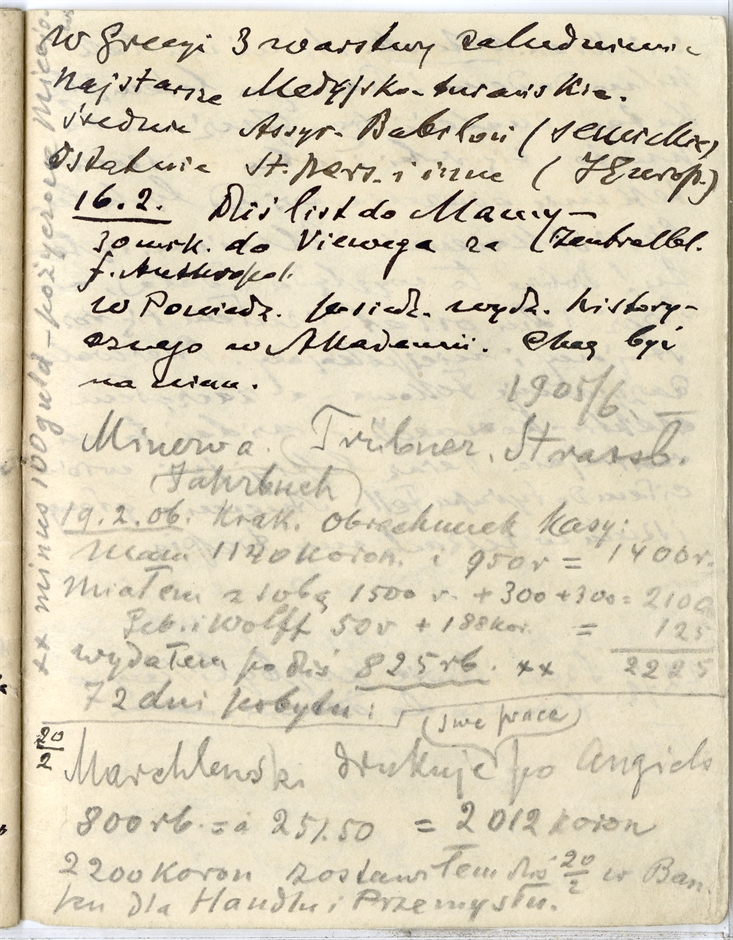 w Grecyi 3 warstwy zaludnienia
Najstarsze Medyjsko-turańskie.
średnie Assyr-Babiloń (semickie)
Ostatnie St. pers. i inne (IEurop.)
16.2. Dziś list do Mamy –
30 mrk. do Viewega za (Zentralbl.
f. Anthropol.
w Poniedz. posiedz. wydz. history-
cznego w Akademii. Chcę być
na niem.
1905/6
Minerwa. Trübner. Strassb.
(Jahrbuch)
19.2.06. Krak. Obrachunek Kasy:
mam 1120 koron. i 950 r = 1400 r.
miałem z sobą 1500 r. + 300 + 300 = 2100
Geb. i Wolff 50 r + 188 kor. = 125
wydałem po dziś 825 rb. xx 2225
72 dni pobytu:
(swe prace)
20/2 Marchlewski drukuje po Angiels
800 rb. = à 251.50 = 2012 koron
2200 Koron zostawiłem dziś 20/2 w Ban-
ku dla Handlu i Przemysłu.
xx minus 100 guld – pożyczone